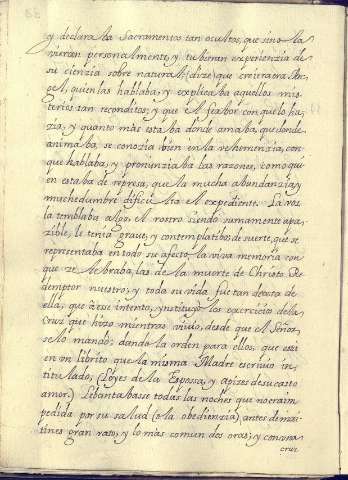 y declaraba Sacramentos tan ocultos, que sino la
vieran personalmente, y tubieran experienzia de
su cienzia sobre natural (dize) que creiera era Ar
quien las hablaba, y explicaba aquellos mis-
terios tan reconditos; y que el feabor con que lo ha-
zia, y quanto mas estaba donde amaba, que donde
animaba, se conozia bien en la vehemenzia, con
que hablaba, y pronunziaba las razones, como que
en estaba de represa, que la mucha abundanzia, y
muchedumbre dificulta el expediente. La voz
la temblaba algo, el rostro siendo sumamente apa-
zible, le tenia graue, y contemplatibo, de suerte, que se
representaba en todo su afecto la viva memoria con
que zelebraba, las de la muerte de Christo Re-
demptor nuestro, y todo su vida fue tan deuota de
ella, que à ese intento, ynstituyò los exercicios de la
Cruz que hizo mientras viuio, desde que el Señor,
se lo mandò; dando la orden para ellos, que està
en un librito que la misma Madre escriuio in-
titulado, (Leyes de la Esposa, y apizes de su casto
amor.) Lebantabasse todas las noches que no era im-
pedida por su salud (ò la obedienzia) antes de mai-
tines gran rato, y lo mas comun dos oras; y con una
cruz